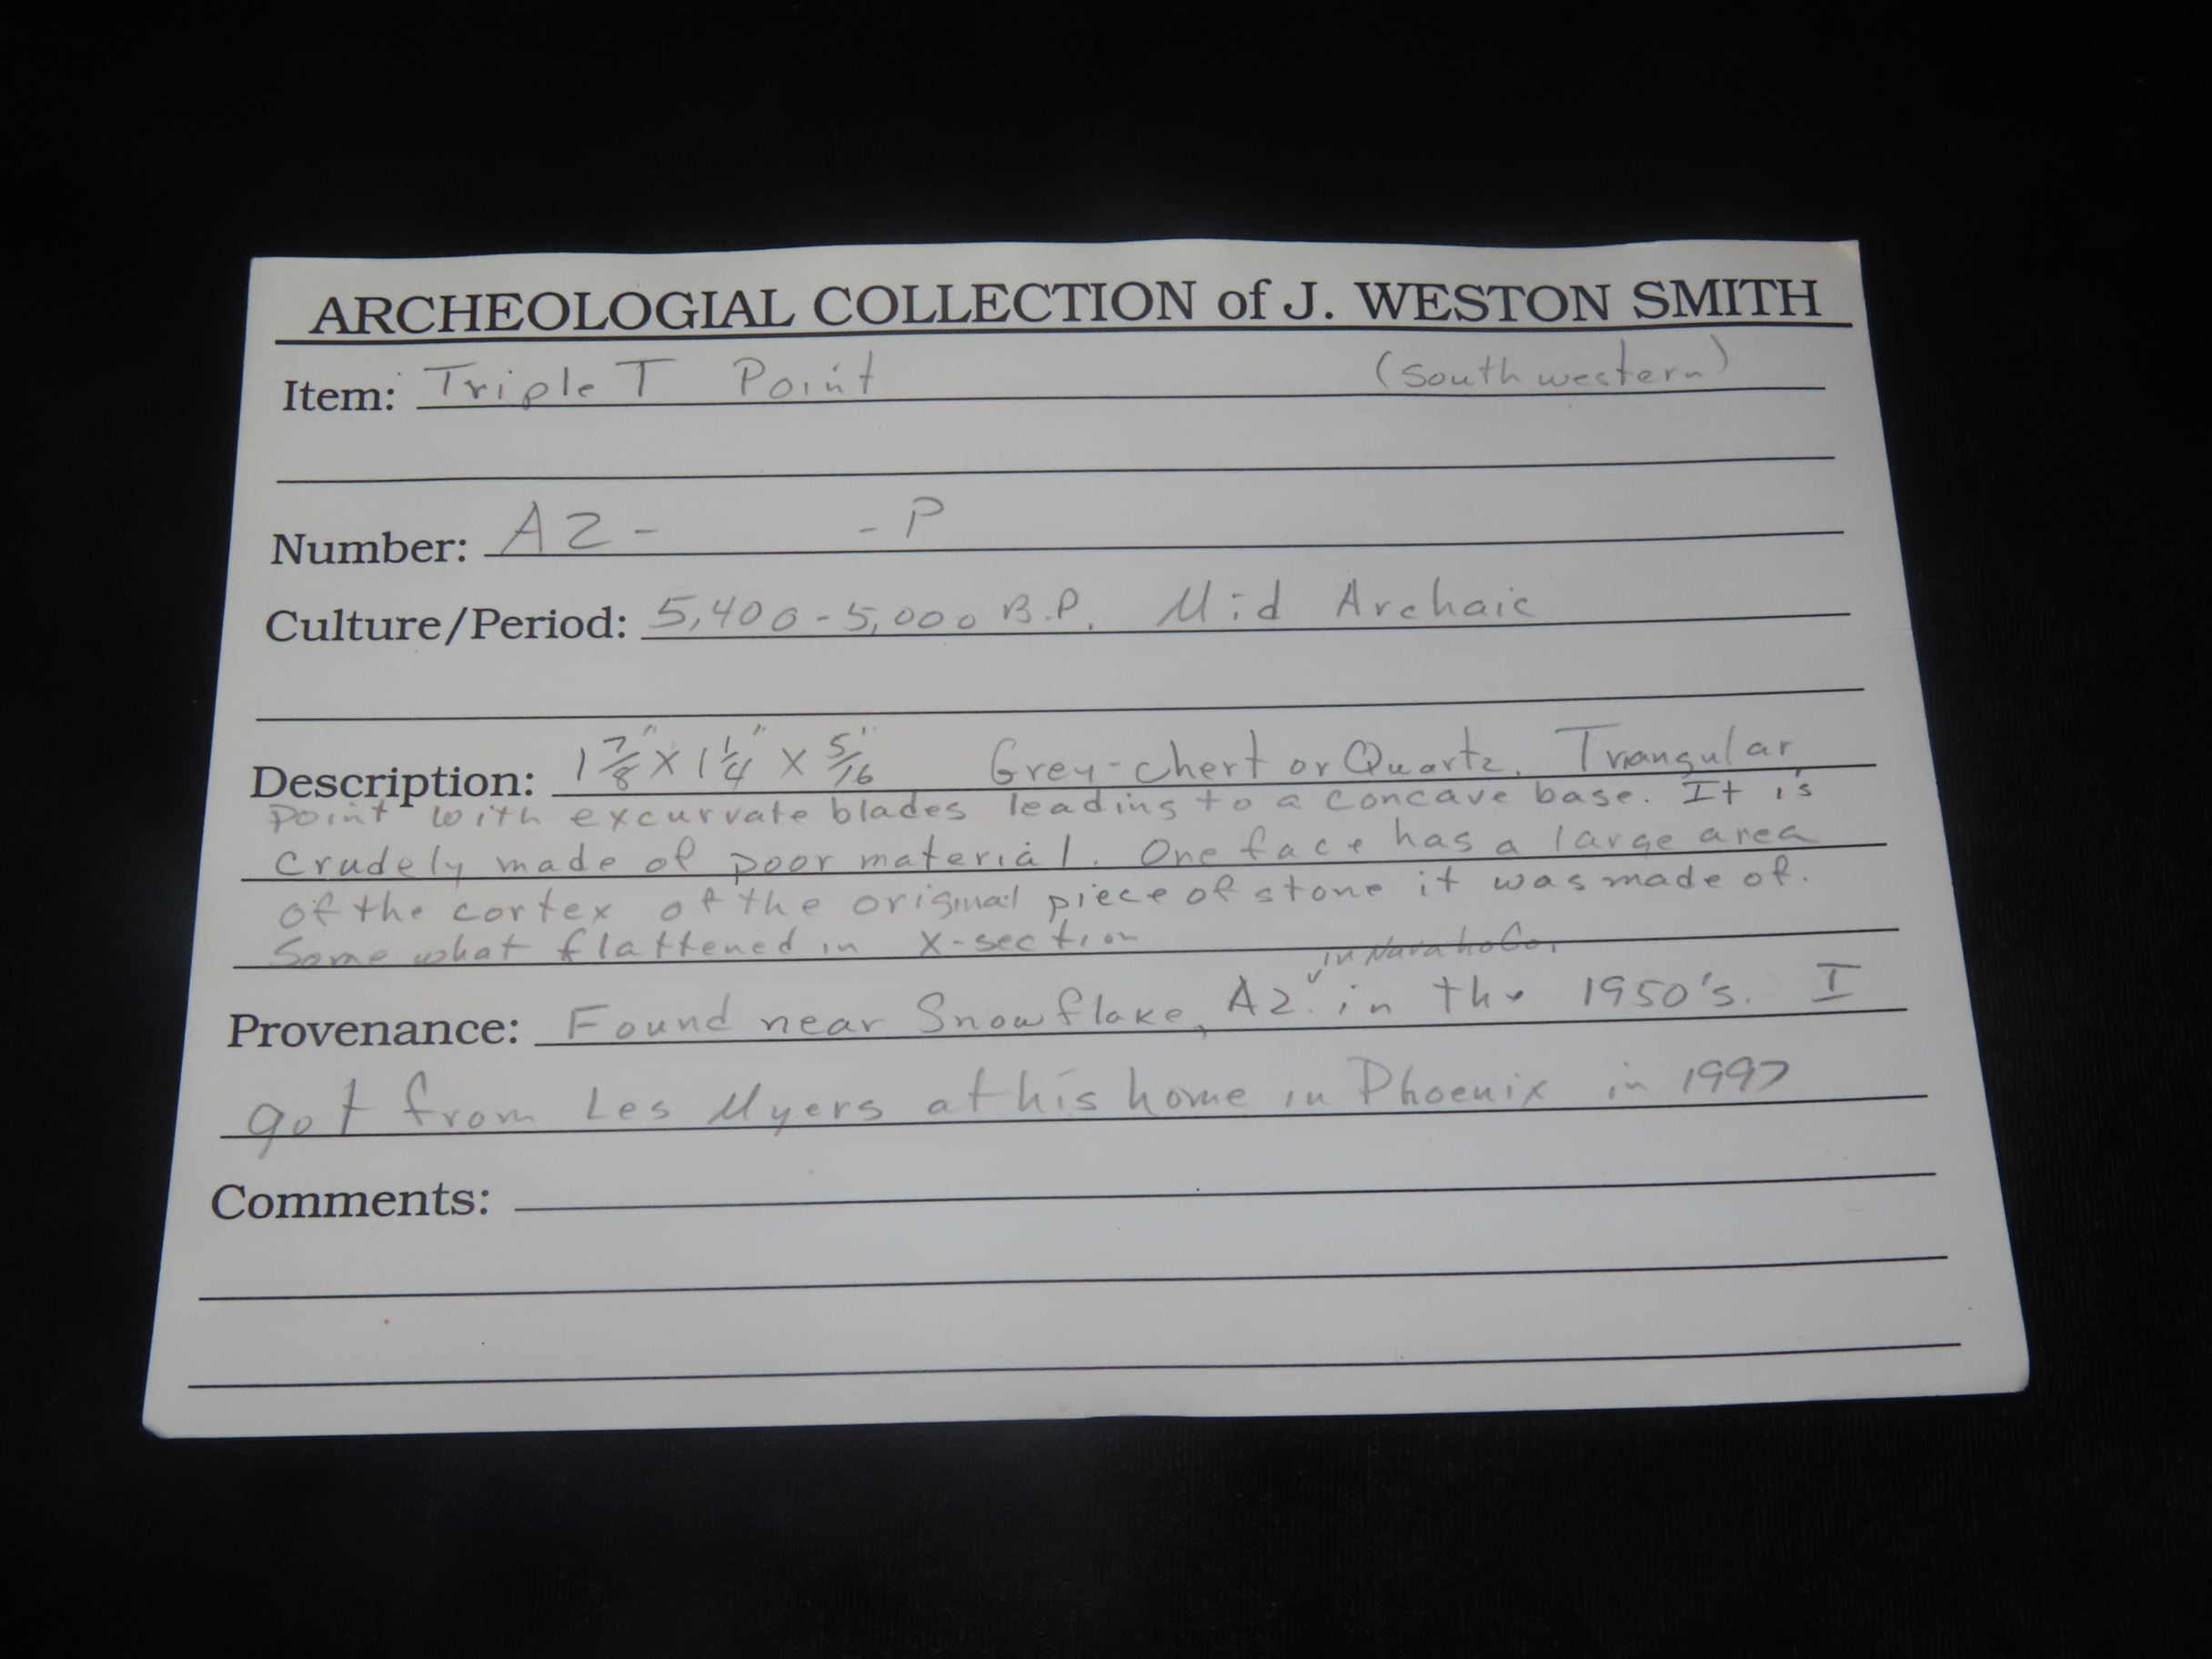 ARCHEOLOGIAL COLLECTION of J. WESTON SMITH
Item: Triple T Point (Southwestern)
Number: AZ- -P
Culture/Period: 5,400-5,000 B.P. Mid Archaic
Description: 1 7/8" X 1 1/4" X 5/16" Grey-chert or Quartz. Trangular
point with excurvate blades leading to a concave base. It is
crudely made of poor material. One face has a large area
of the cortex of the original piece of stone it was made of.
Some what flattened in X-section
in Navaho Co.
Provenance: Found near Snowflake, AZ. in the 1950's. I
got from Les Myers at his home in Phoenix in 1997
Comments: